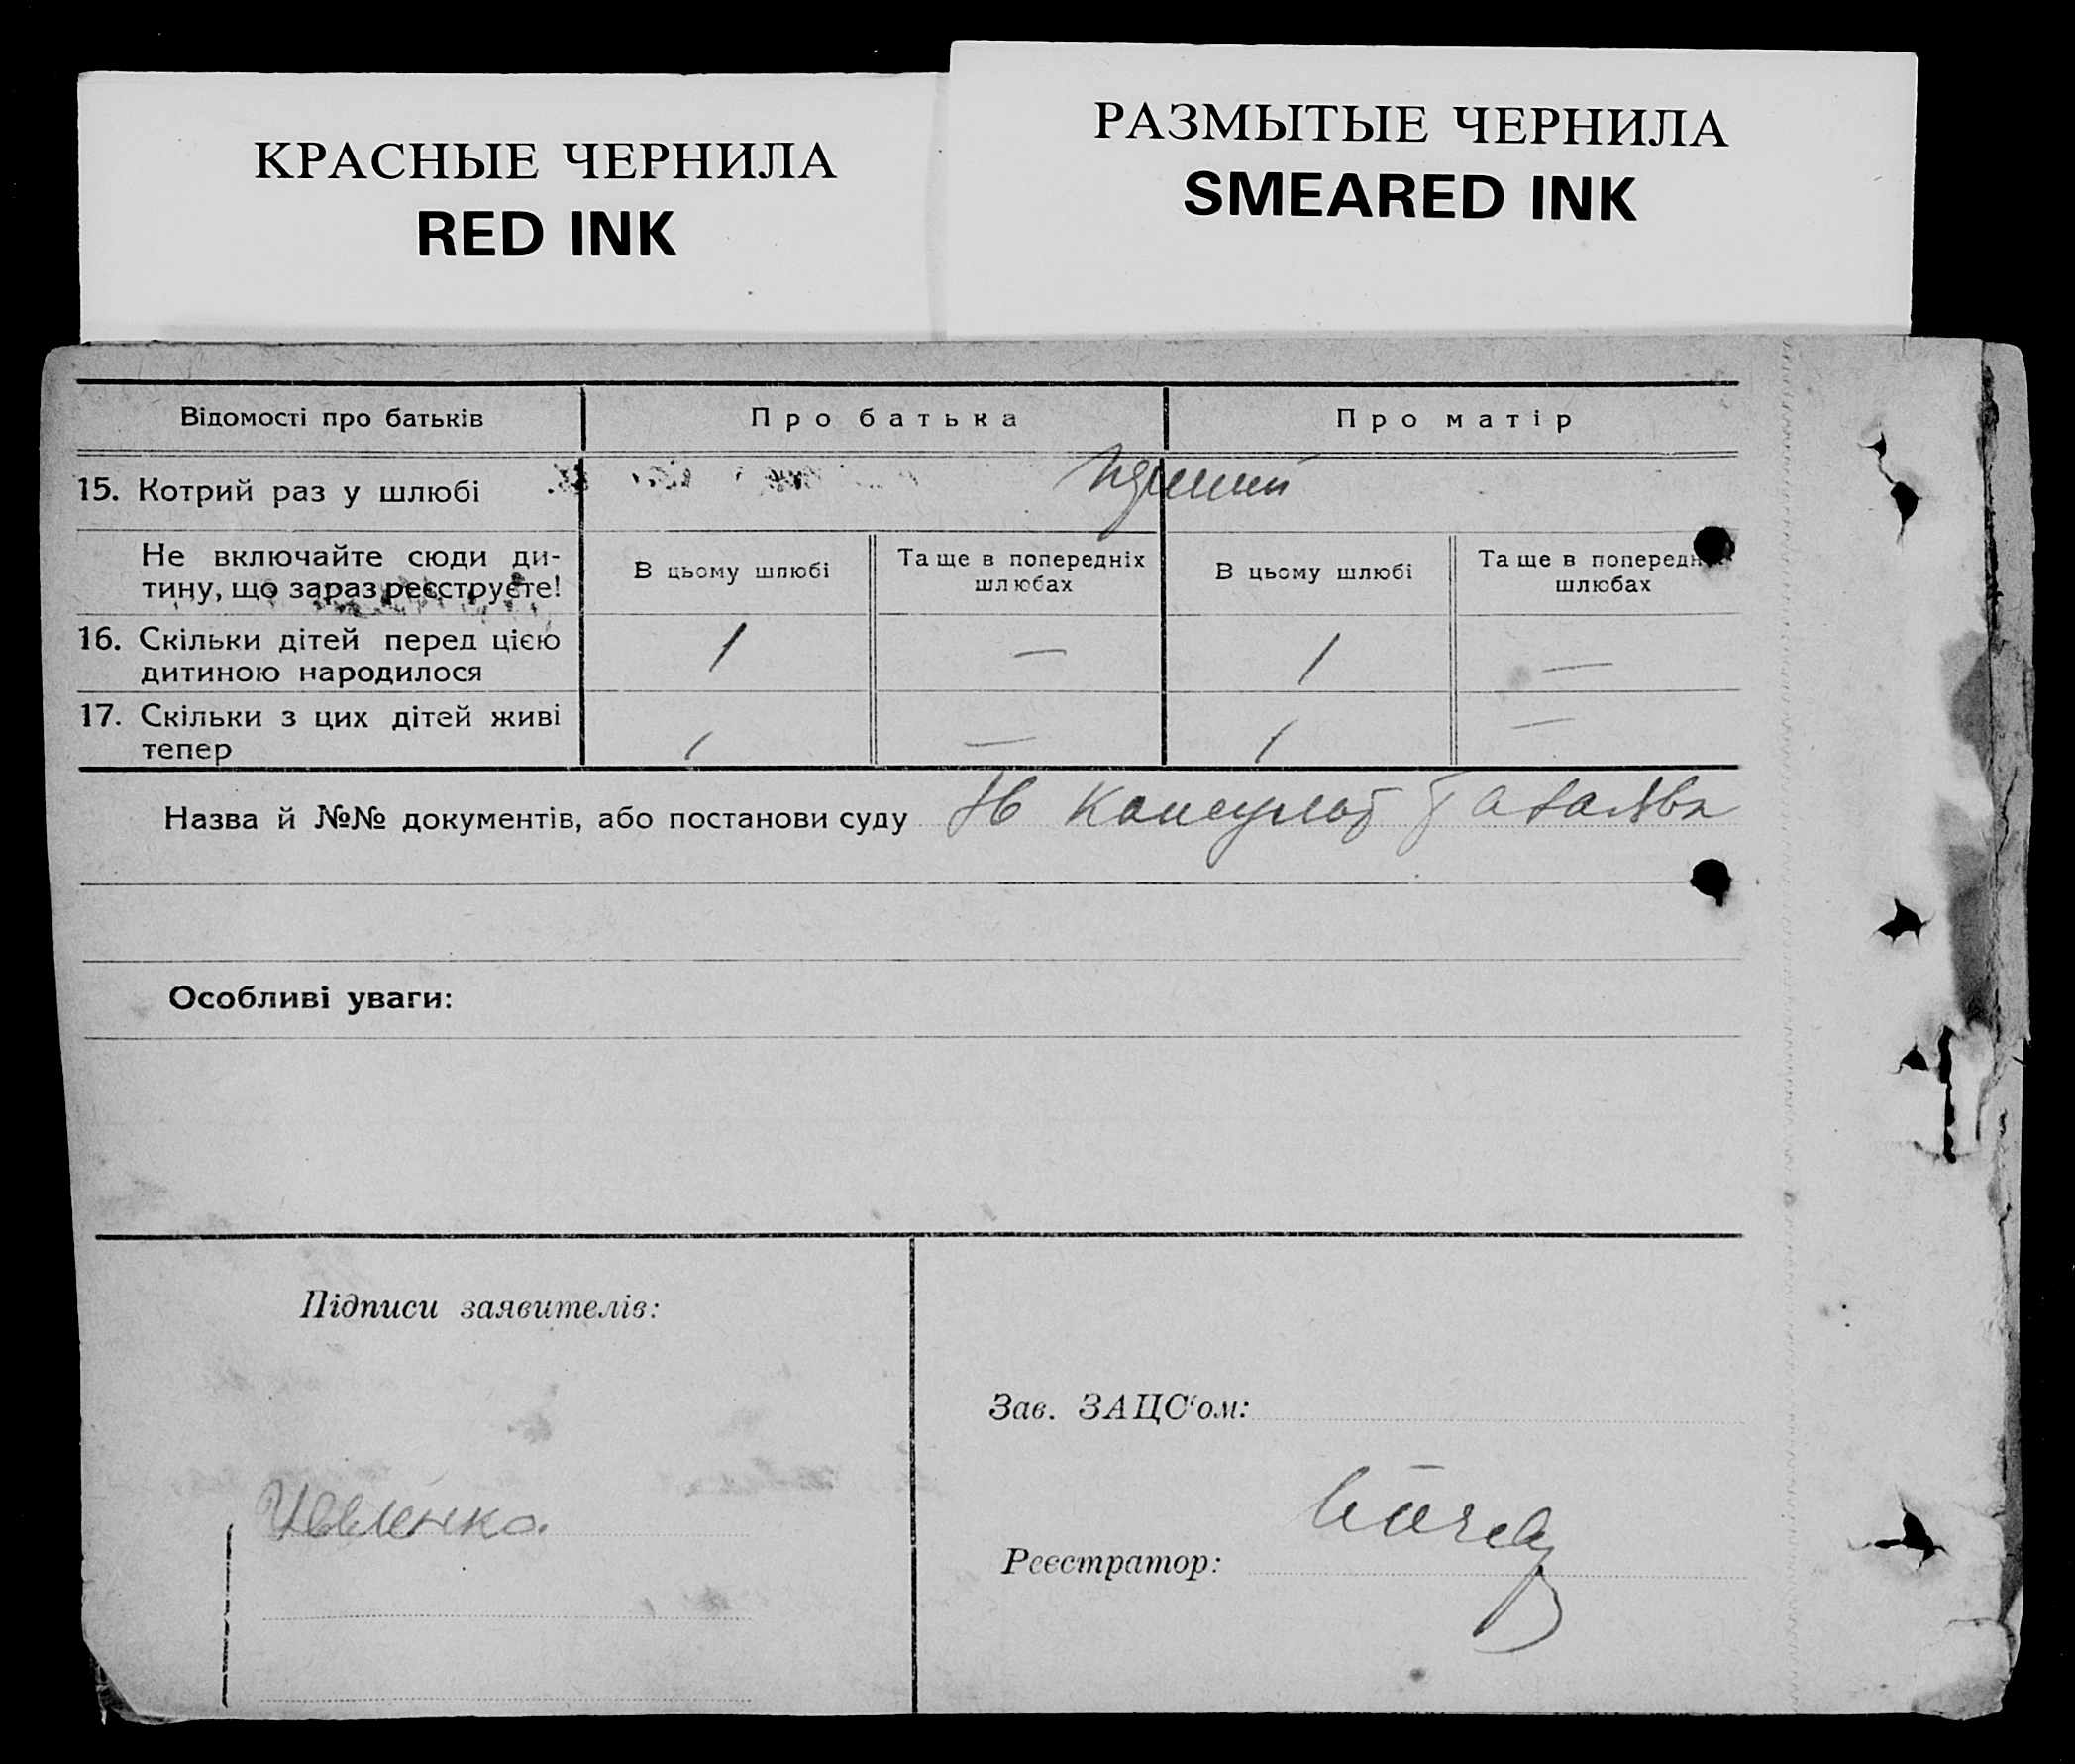 КРАСНЫЕ ЧЕРНИЛА
RED INK
РАЗМЫТЫЕ ЧЕРНИЛА
SMEARED INK
Відомості про батьків
Про батька
Про матір
15. Котрий раз у шлюбі
Не включайте сюди ди-
тину, що зараз реєструєте!
В цьому шлюбі
Та ще в попередніх
шлюбах
В цьому шлюбі
Та ще в попередн
шлюбах
16. Скільки дітей перед цією
дитиною народилося
1 — 1 —
17. Скільки з цих дітей живі
тепер
1 — 1 —
Назва й №№ документів, або постанови суду
Особливі уваги:
Підписи заявителів:
Зав. ЗАЦС'ом:
Реєстратор: